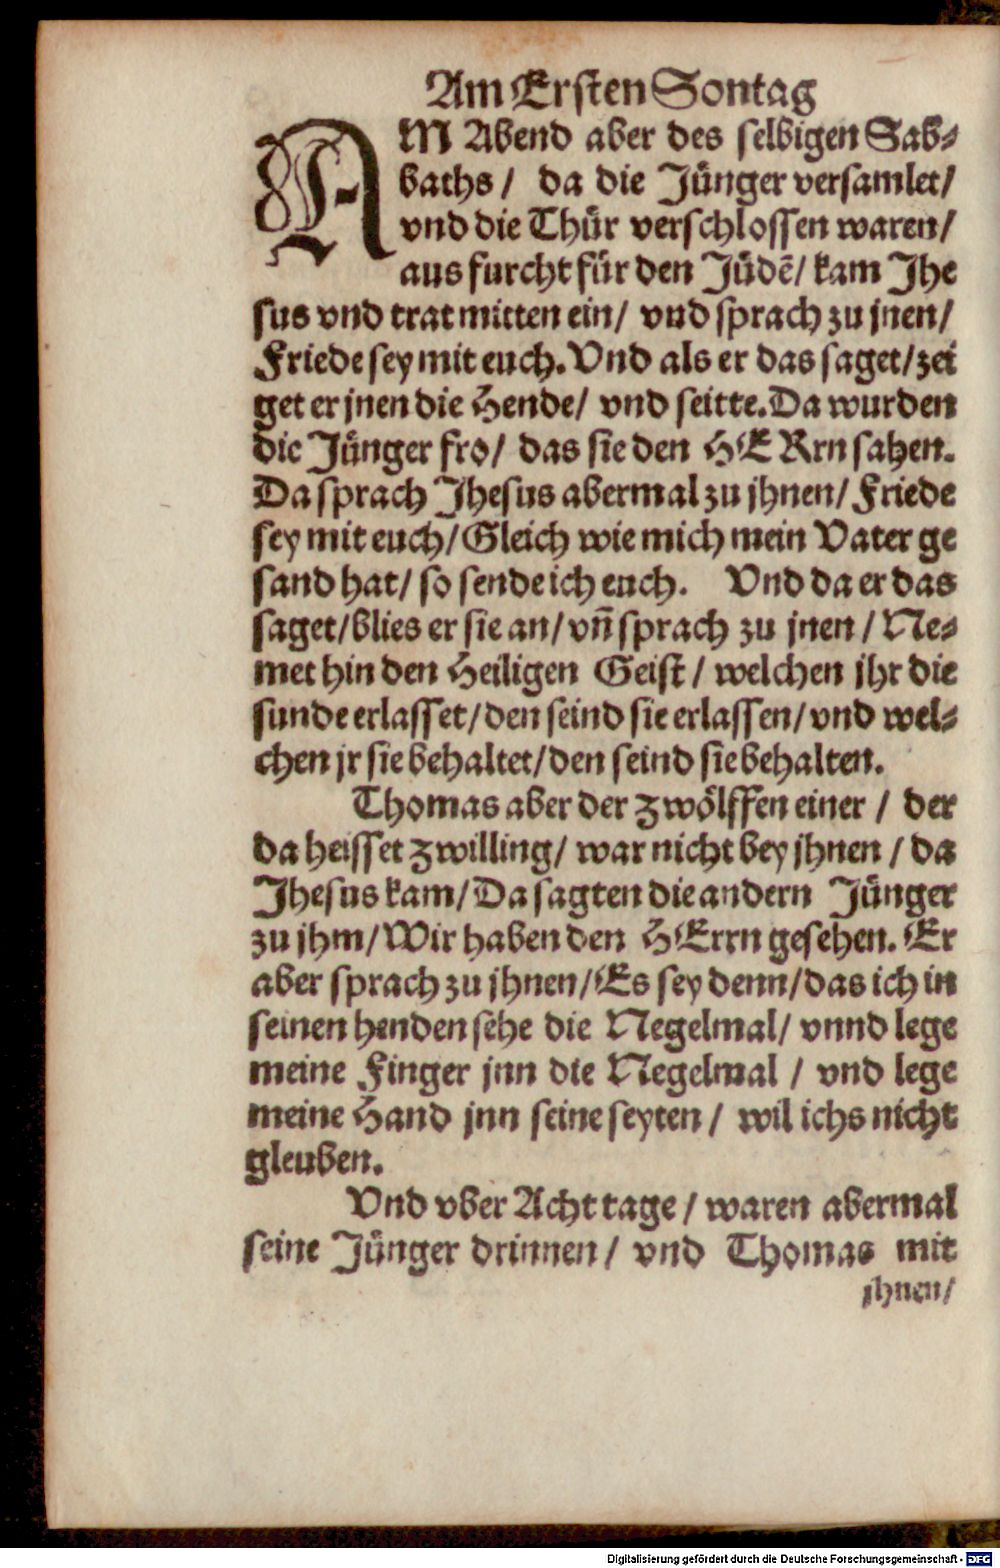 Am Ersten Sontag
AM Abend aber des selbigen Sab⸗
baths / da die Jünger versamlet/
vnd die Thür verschlossen waren/
aus furcht für den Jüdē/ kam Jhe
sus vnd trat mitten ein/ vnd sprach zu jnen/
Friede sey mit euch. Vnd als er das saget/ zei
get er jnen die Hende/ vnd seitte. Da wurden
die Jünger fro/ das sie den HERrn sahen.
Da sprach Jhesus abermal zu jhnen/ Friede
sey mit euch/ Gleich wie mich mein Vater ge
sand hat/ so sende ich euch. Vnd da er das
saget/ blies er sie an/ vñ sprach zu jnen / Ne⸗
met hin den Heiligen Geist / welchen jhr die
sunde erlasset/ den seind sie erlassen/ vnd wel⸗
chen jr sie behaltet/ den seind sie behalten.
Thomas aber der zwölffen einer / der
da heisset zwilling/ war nicht bey jhnen / da
Jhesus kam/ Da sagten die andern Jünger
zu jhm/ Wir haben den HErrn gesehen. Er
aber sprach zu jhnen/ Es sey denn/ das ich in
seinen henden sehe die Negelmal/ vnnd lege
meine Finger jnn die Negelmal / vnd lege
meine Hand jnn seine seyten / wil ichs nicht
gleuben.
Vnd vber Acht tage / waren abermal
seine Jünger drinnen / vnd Thomas mit
jhnen/
Digitalisierung gefördert durch die Deutsche Forschungsgemeinschaft - DFG